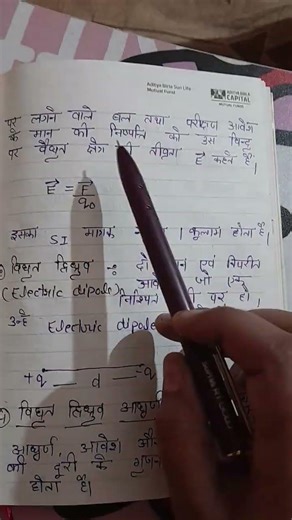 Aditya Birla Sun Life
Mutual Fund
ADITYA BIRLA
CAPITAL
MUTUAL FUND
पर लगने वाले बल तथा परीक्षण आवेश
के मान की निष्पत्ति को उस बिन्दु
पर वैद्युत क्षेत्र की तीव्रता E⃗ कहते हैं।
E⃗ = F⃗/q₀
इसका SI मात्रक कूलाम होता है
विद्युत द्विध्रुव :- दो एवं विपरीत
(Electric dipole) आवेश जो
निश्चित पर हैं।
उन्हें Electric dipole
+q d -q
विद्युत द्विध्रुव आघूर्ण
आघूर्ण आवेश और
की दूरी के गुणन
होता है।